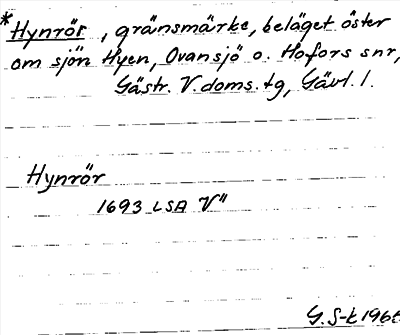 *Hynrör, gränsmärke, beläget öster
om sjön Hyen, Ovansjö o. Hofors snr,
Gästr. V. doms. tg, Gävl. l.
Hynrör
1693 LSA V"
G. S-k 1966